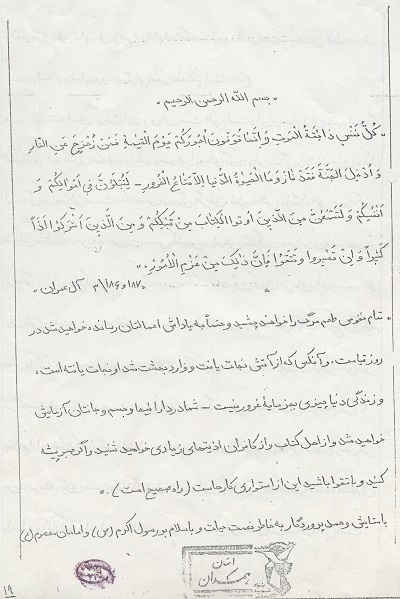 بسم الله الرحمن الرحیم
کُلُّ نَفْسٍ ذَائِقَةُ الْمَوْتِ وَاِنَّمَا تُوَفَّوْنَ اُجُورَکُمْ یَوْمَ الْقِیٰمَةِ فَمَنْ زُحْزِحَ عَنِ النّارِ
وَ اُدْخِلَ الْجَنَّةَ فَقَدْ فازَ وَمَا الْحَیٰوةُ الدُّنْیا اِلّا مَتاعُ الْغُرُورِ - لَتُبْلَوُنَّ فی اَمْوالِکُمْ وَ
اَنْفُسِکُمْ وَ لَتَسْمَعُنَّ مِنَ الَّذینَ اُوتُوا الْکِتابَ مِنْ قَبْلِکُمْ وَ مِنَ الَّذینَ اَشْرَکُوا اَذًی
کَثیراً وَ اِنْ تَصْبِرُوا وَ تَتَّقُوا فَاِنَّ ذٰلِکَ مِنْ عَزْمِ الْاُمُورِ
۱۸۷ و ۱۸۶/۳ آل عمران
تمام نفوس طعم مرگ را خواهند چشید و حتماً به پاداش اعمالتان رسانده خواهید شد در
روز قیامت، و آنکس که از آتش نجات یافت و وارد بهشت شد او نجات یافته است،
و زندگی دنیا چیزی بجز مایهٔ غرور نیست - شما در دارائیها و جسم و جانتان آزمایش
خواهید شد و از اهل کتاب و از کافران اذیتهای زیادی خواهید شنید و اگر صبر پیشه
کنید و باتقوا باشید این از استواری کارهاست (راه صحیح است).
با ستایش و حمد پروردگار به خاطر نعمت حیات و با سلام بر رسول اکرم (ص) و امامان معصوم (ع)
استان
همدان
۱۹